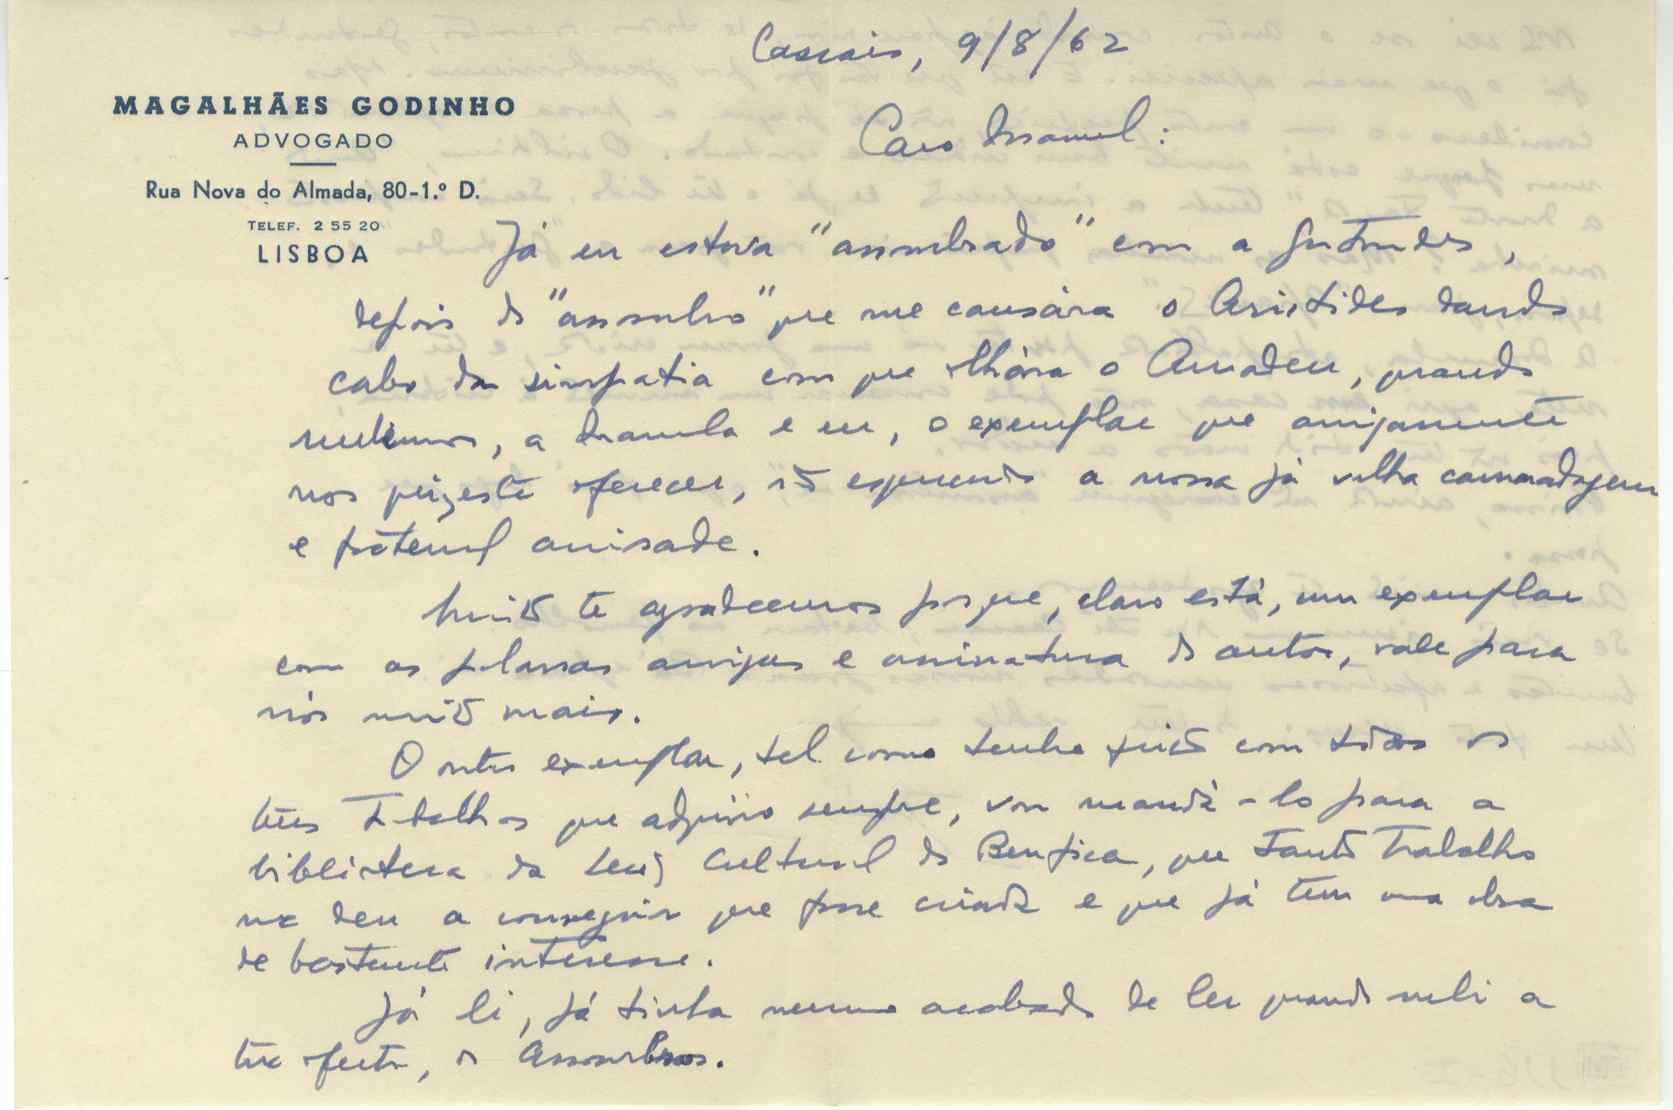 Cascais, 9/8/62
MAGALHÃES GODINHO
ADVOGADO
Rua Nova do Almada, 80-1.º D.
TELEF. 2 55 20
LISBOA
Caro Manuel:
Já eu estava "assombrado" com a Gertrudes,
depois do "assombro" que me causára o Aristides dando
cabo da simpatia com que olhára o Amadeu, quando
recebemos, a Manuela e eu, o exemplar que amigamente
nos quizeste oferecer, não esquecendo a nossa já velha camaradagem
e fraternal amisade.
Muito te agradecemos porque, claro está, um exemplar
com as palavras amigas e assinatura do autor, vale para
nós muito mais.
O outro exemplar, tal como tenho feito com todos os
teus trabalhos que adquiro sempre, vou mandá-lo para a
biblioteca da Secç Cultural do Benfica, que tanto trabalho
me deu a conseguir que fosse criada e que já tem uma obra
de bastante interesse.
Já li, já tinha mesmo acabado de ler quando recebi a
tua oferta, os Assombros.